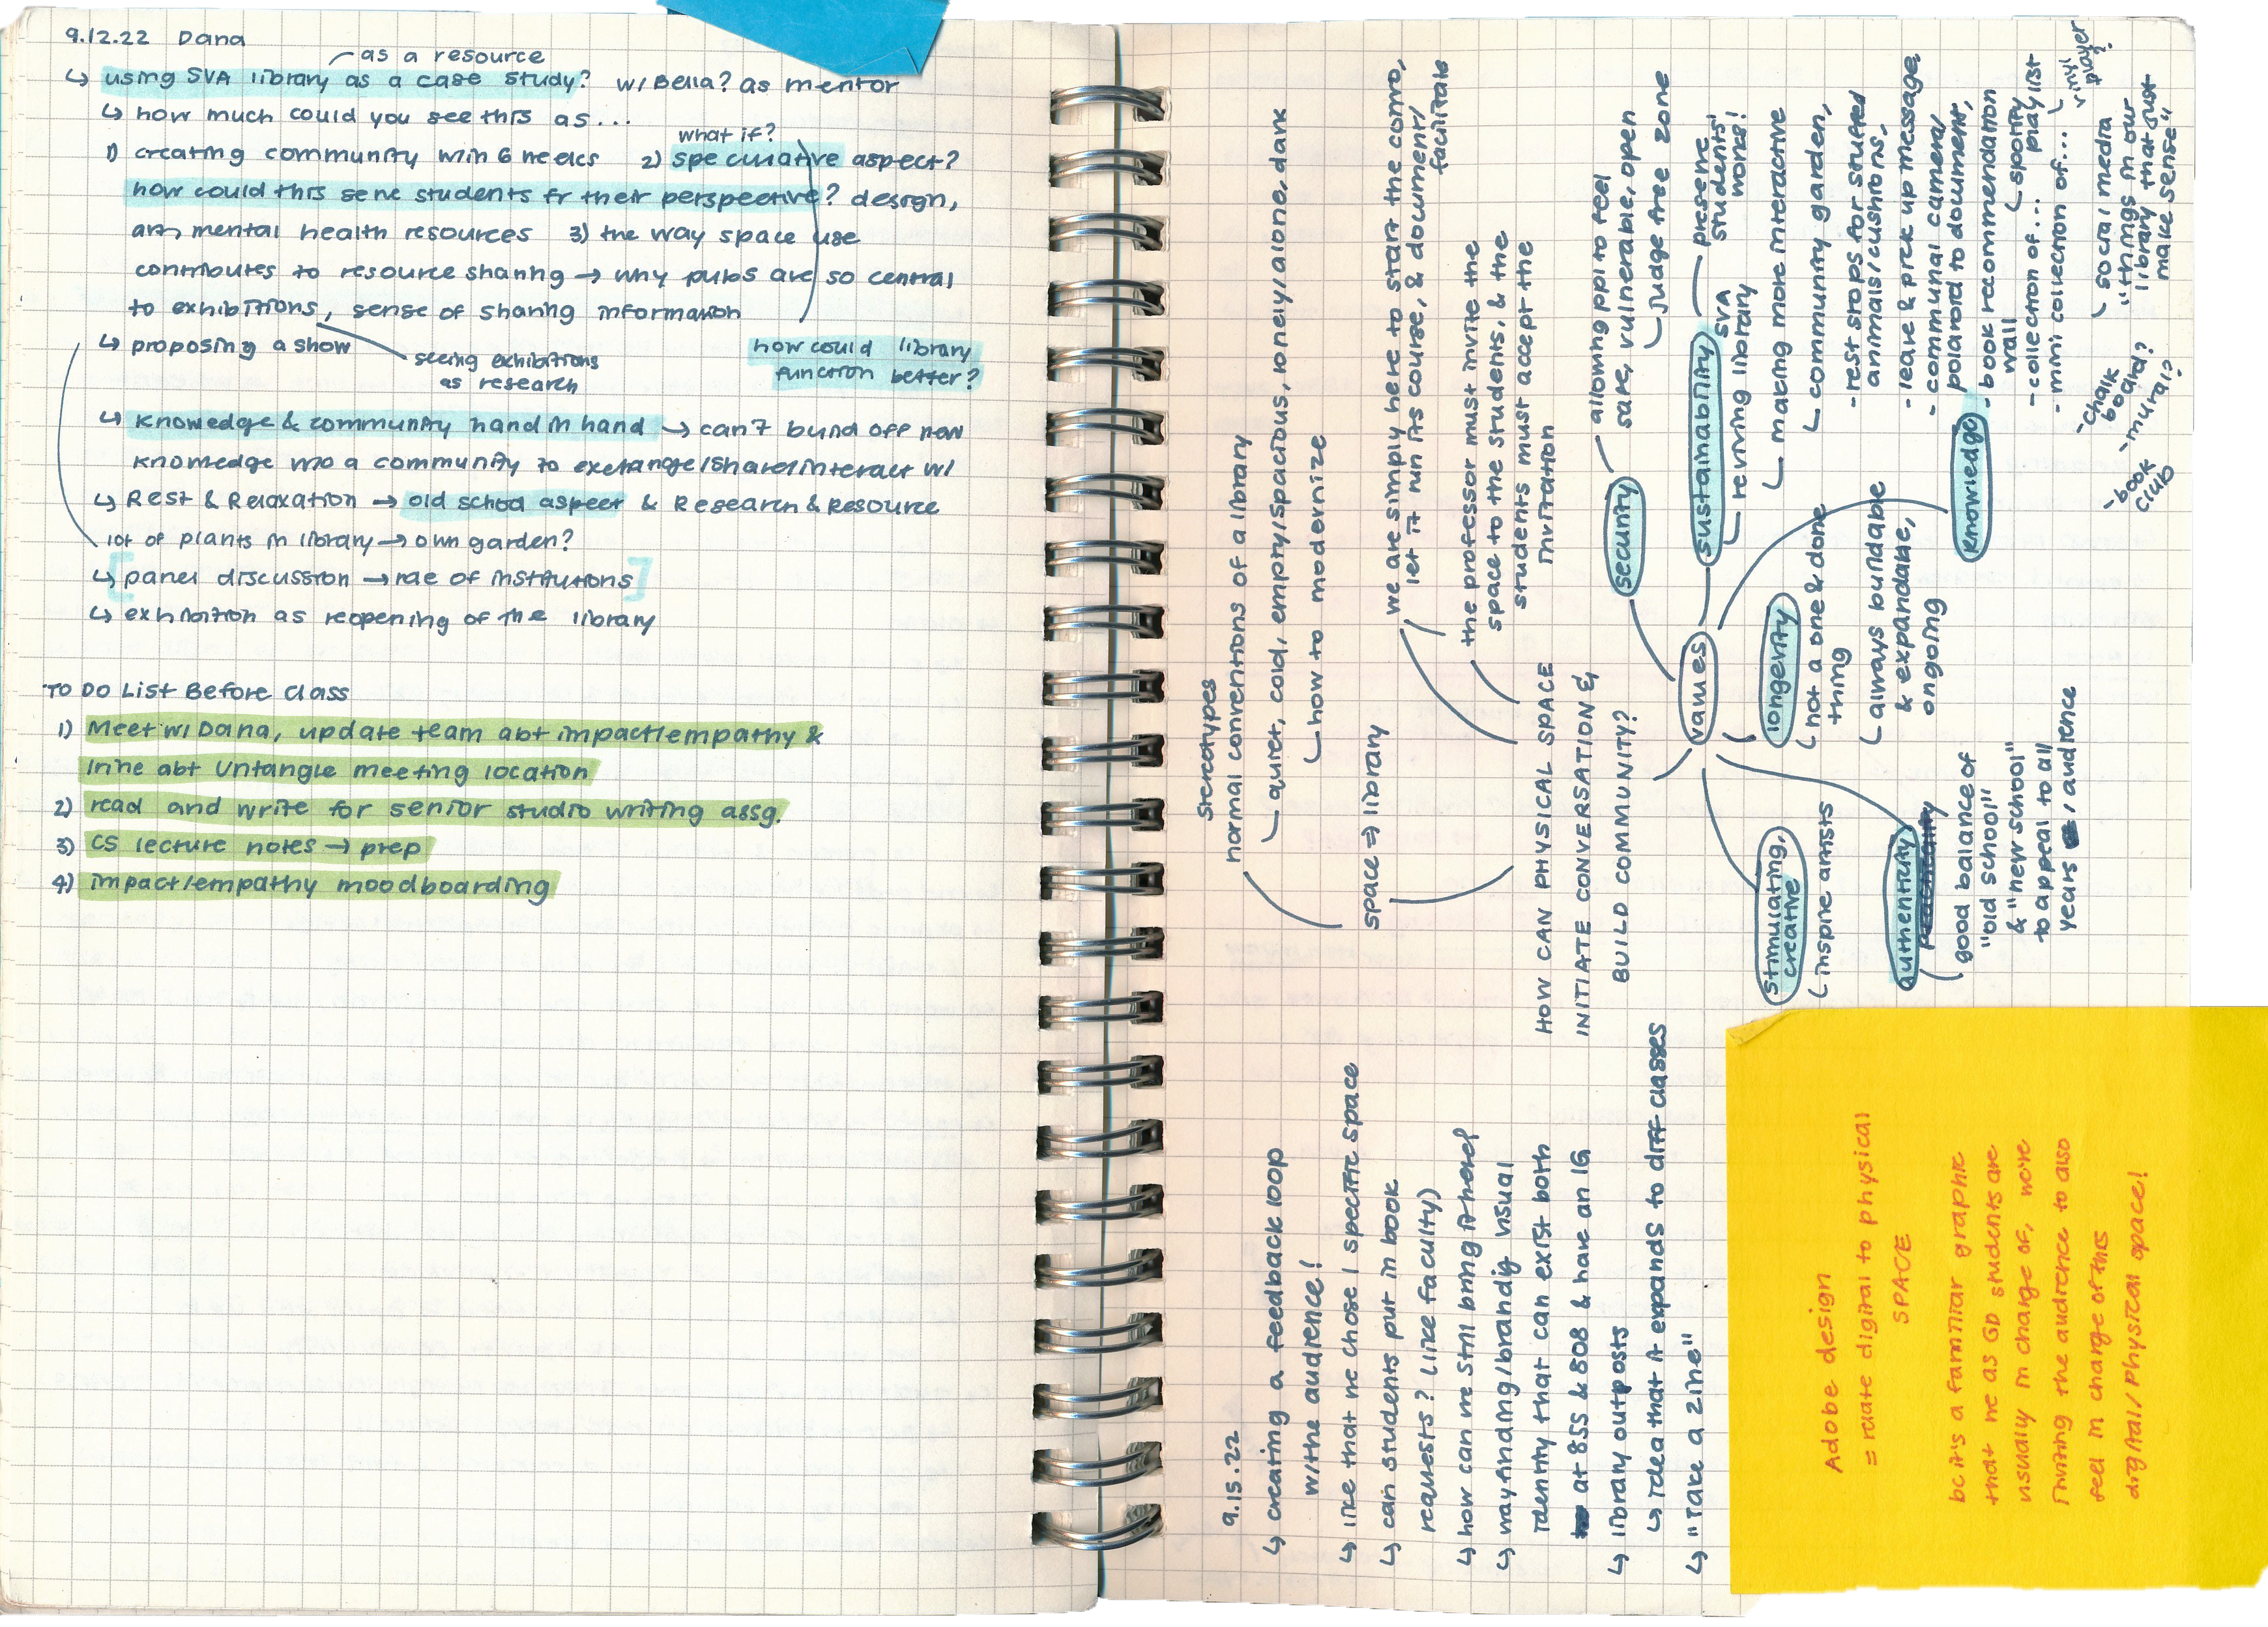 9.12.22 Dana
as a resource
↳ using SVA library as a case study? w/ Bella? as mentor
↳ how much could you see this as...
what if?
1) creating community w/in 6 weeks 2) speculative aspect?
how could this serve students fr their perspective? design,
art, mental health resources 3) the way space use
contributes to resource sharing → why pubs are so central
to exhibitions, sense of sharing information
↳ proposing a show
seeing exhibitions
as research
how could library
function better?
↳ knowledge & community hand in hand → can't build off new
knowledge w/o a community to exchange/share/interact w/
↳ Rest & Relaxation → old school aspect & Research & Resource
lot of plants in library → own garden?
[↳ panel discussion → role of institutions]
↳ exhibition as reopening of the library
TO DO List Before Class
1) Meet w/ Dana, update team abt impact/empathy &
Irine abt Untangle meeting location
2) read and write for senior studio writing assg.
3) CS lecture notes → prep
4) impact/empathy moodboarding
stereotypes
normal conventions of a library
↳ quiet, cold, empty/spacious, lonely/alone, dark
↳ how to modernize
space ⇒ library
we are simply here to start the convo,
let it run its course, & document/
facilitate
the professor must invite the
space to the students, & the
students must accept the
invitation
HOW CAN PHYSICAL SPACE
INITIATE CONVERSATION &
BUILD COMMUNITY?
values
security
allowing ppl to feel
safe, vulnerable, open
↳ judge free zone
sustainability
presenc
students'
works!
SVA
↳ reviving library
↳ making more interactive
↳ community garden,
- rest stops for stuffed
animals/cushions,
- leave & pick up message
- communal camera/
polaroid to document,
knowledge
- book recommendation
wall
↳ spotify
playlist
- collection of...
- mini collection of...
↳ vinyl
player?
↳ social media
"things in our
library that just
make sense"
- chalk
board?
- mural?
- book
club
longevity
↳ not a one & done
thing
↳ always buildable
& expandable,
ongoing
stimulating,
creative
↳ inspire artists
authenticity
good balance of
"old school"
& "new school"
to appeal to all
years, audience
9.15.22
↳ creating a feedback loop
w/ the audience!
↳ like that we chose 1 specific space
↳ can students put in book
requests? (like faculty)
↳ how can we still bring it here?
↳ wayfinding/branding visual
identity that can exist both
at 855 & 808 & have an IG
↳ library outposts
↳ idea that it expands to diff classes
↳ "Take a zine"
Adobe design
= relate digital to physical
SPACE
bc it's a familiar graphic
that we as GD students are
usually in charge of, we're
inviting the audience to also
feel in charge of this
digital/physical space!